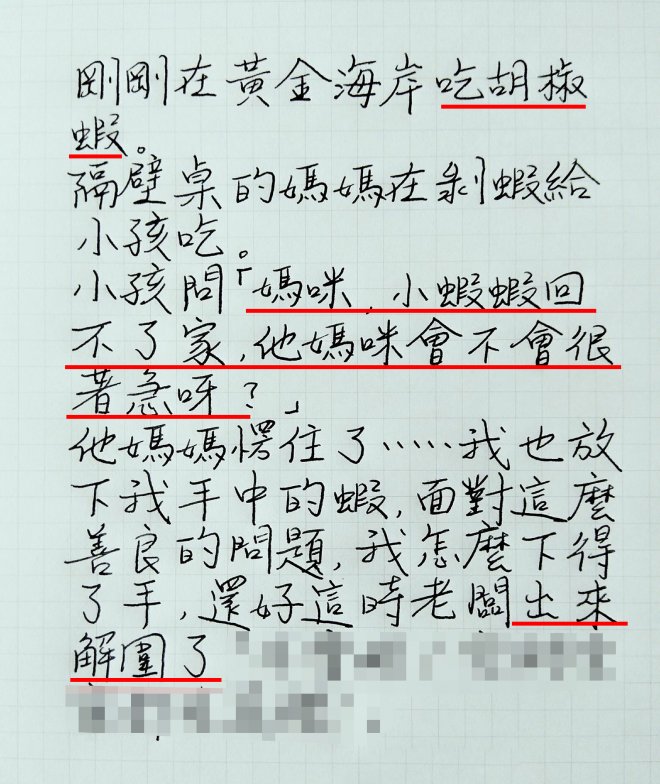 剛剛在黃金海岸吃胡椒
蝦。
隔壁桌的媽媽在剝蝦給
小孩吃。
小孩問「媽咪,小蝦蝦回
不了家,他媽咪會不會很
著急呀?」
他媽媽愣住了……我也放
下我手中的蝦,面對這麼
善良的問題,我怎麼下得
了手,還好這時老闆出來
解圍了